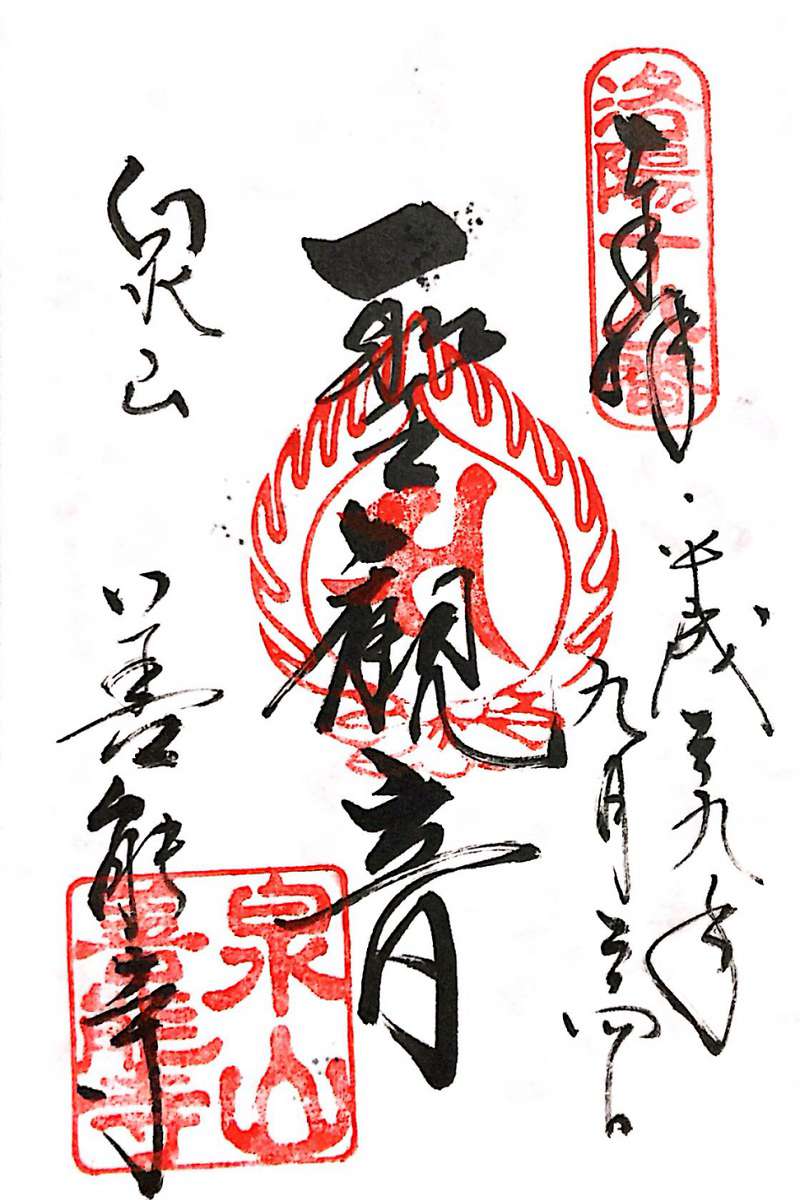 洛陽十八番
奉拝
平成二十九年
九月二十四日
一聖観音
泉山
善能寺
泉山
善能寺